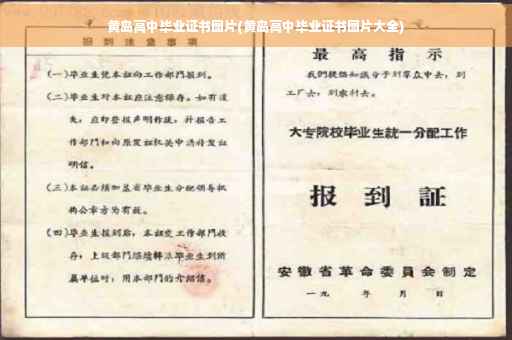 黄岛高中毕业证书图片(黄岛高中毕业证书图片大全)
报到注意事项
(一)毕业生凭本证向工作部门报到。
(二)毕业生对本证应注意保存。如有遗
失,应即登报声明作废,并报告工
作部门和向原发证机关申请补发证
明信。
(三)本证必须加盖省毕业生分配领导机
构公章方为有效。
(四)毕业生报到后,本证交工作部门收
存;上级部门继续转派毕业生到所
属单位时,用本部门的介绍信。
最高指示
我们提倡知识分子到群众中去,到
工厂去,到农村去。
大专院校毕业生统一分配工作
报到証
安徽省革命委员会制定
一九 年 月 日